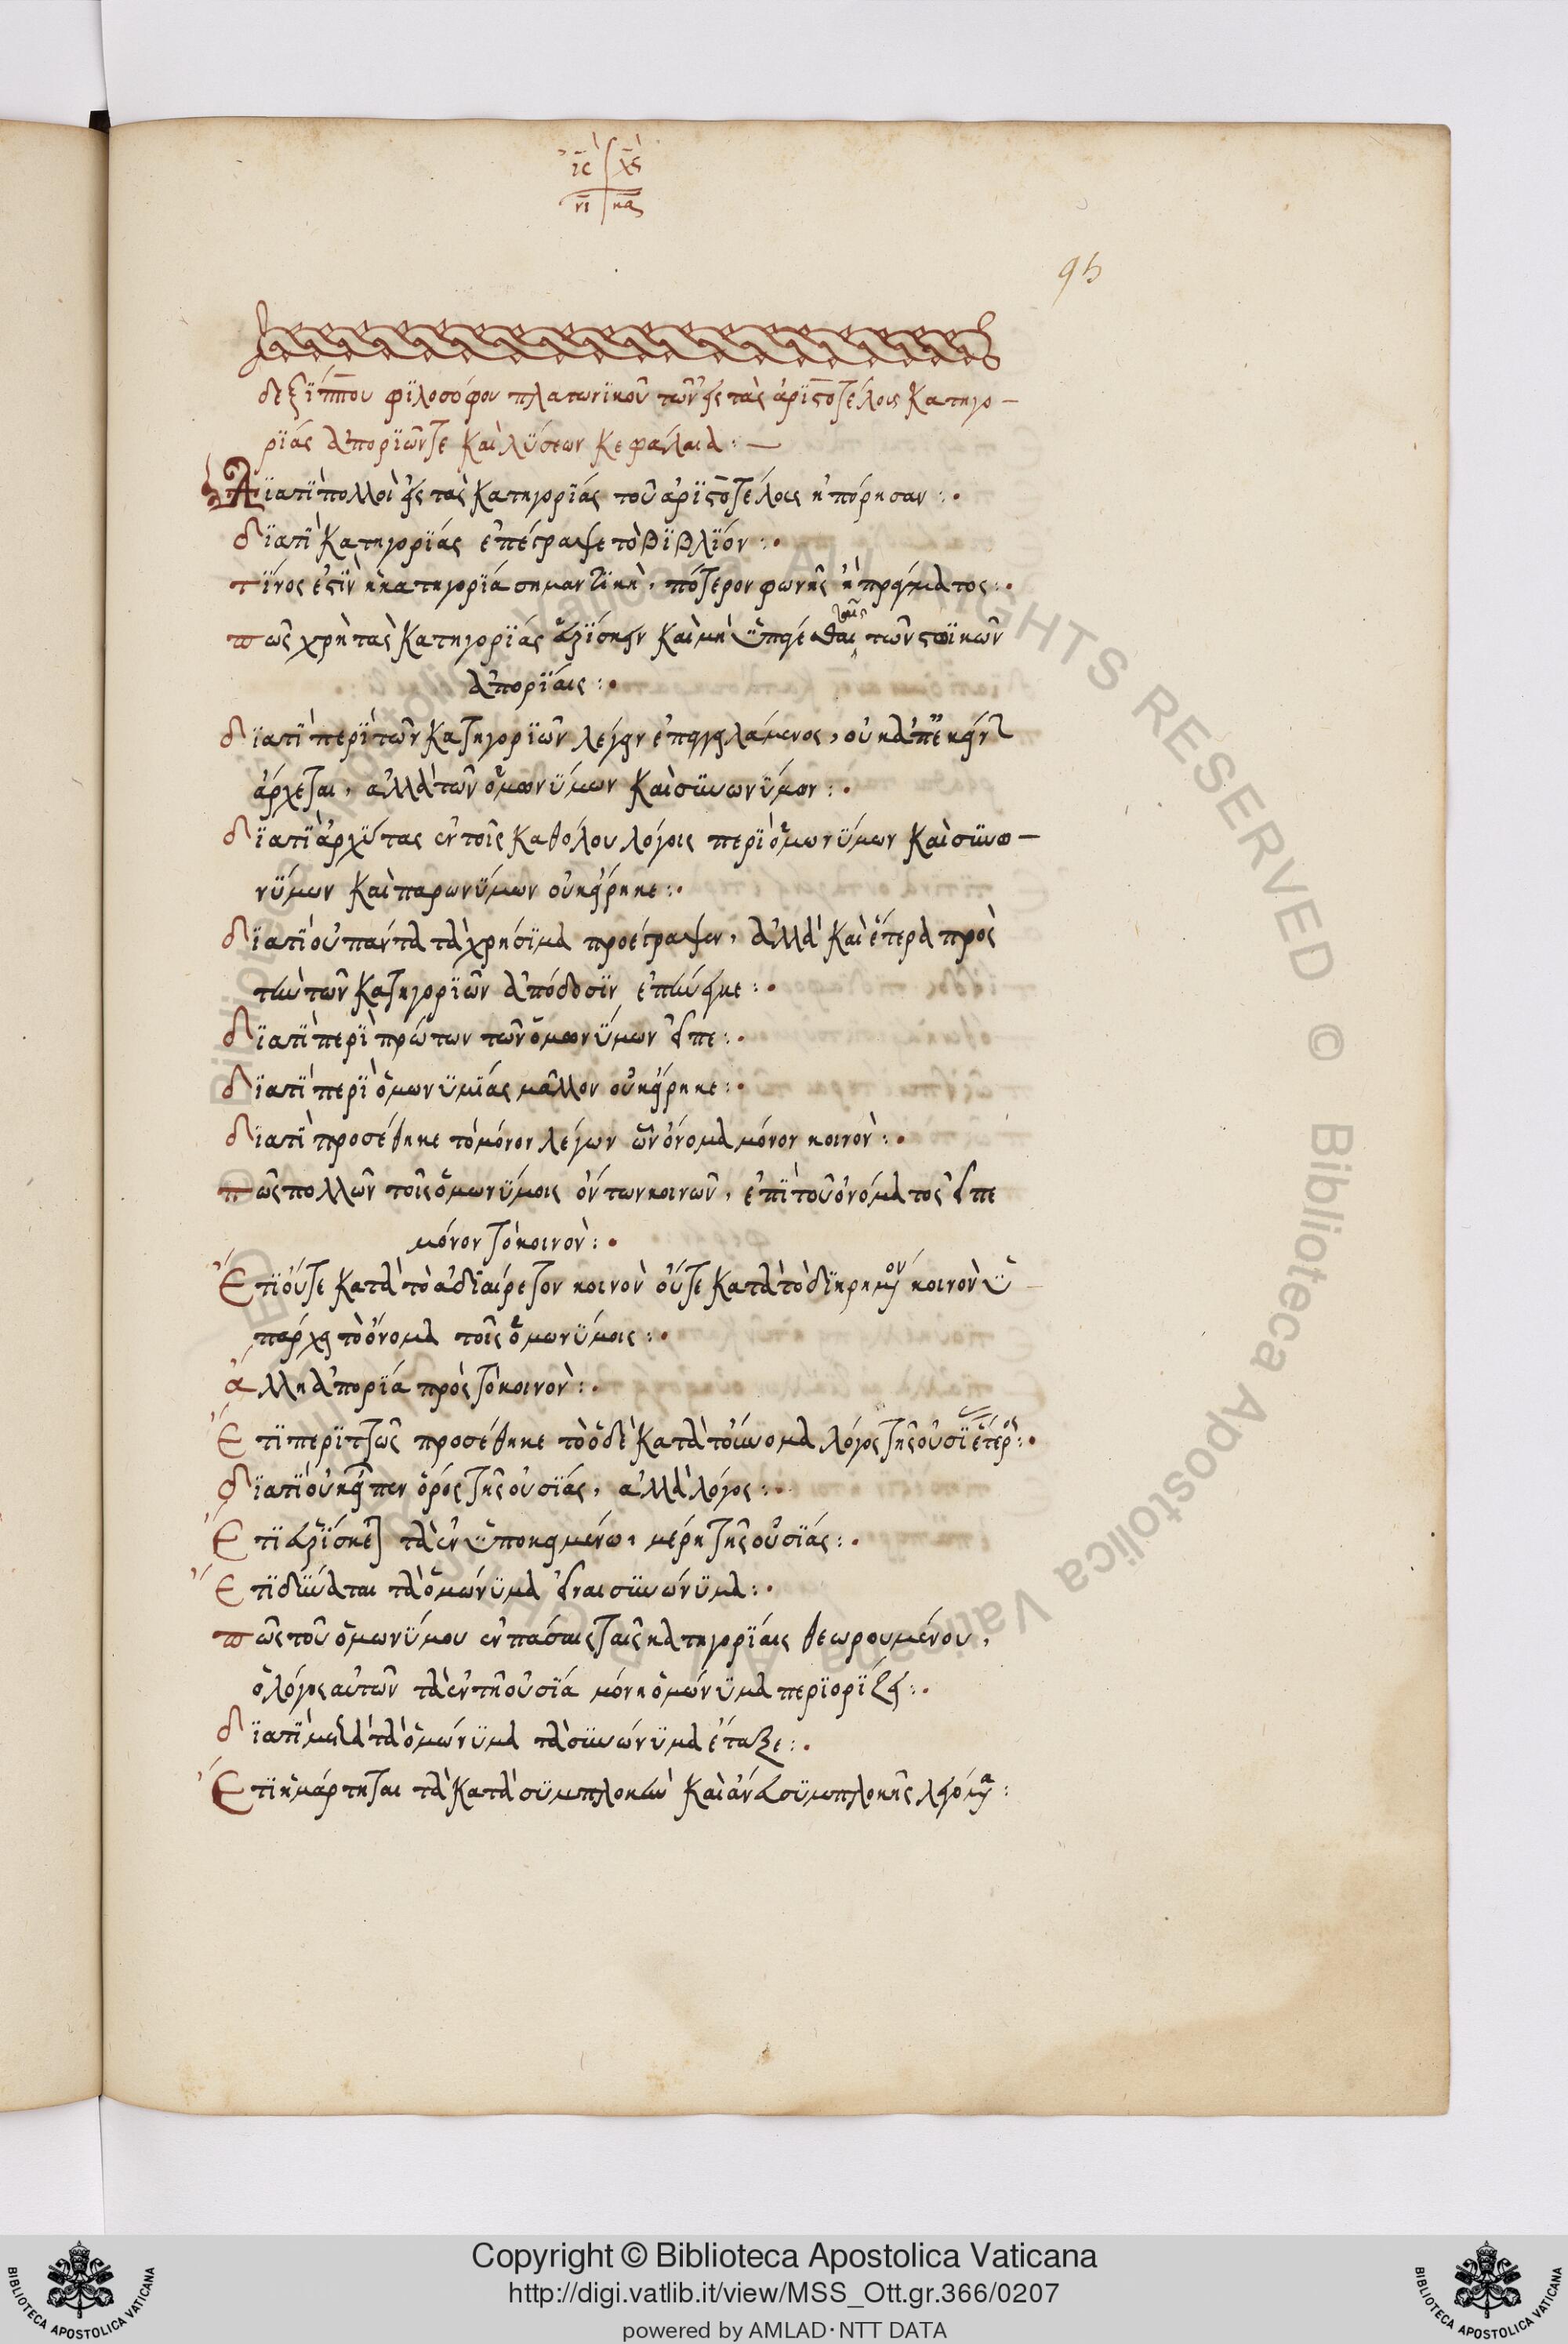 ἰς χς
νι κα
95
δεξίππου φιλοσόφου πλατωνικοῦ τῶν εἰς τὰς ἀριστοτέλους κατηγο-
ρίας ἀποριῶντε καὶ λύσεων κεφάλαια :-
Διατὶ πολλοὶ εἰς τὰς κατηγορίας τοῦ ἀριστοτέλους ἠπόρησαν :.
διατὶ κατηγορίας ἐπέγραψε τὸ βιβλίον :.
τίνος ἐστὶν ἡ κατηγορία σημαντικὴ, πότερον φωνῆς ἢ πράγματος :.
πῶς χρὴ τὰς κατηγορίας καὶ μὴ ταῖς τῶν στωϊκῶν
ἀπορίαις :.
διατὶ περὶ τῶν κατηγοριῶν λέγειν ἐπαγγειλάμενος, οὐκ ἀπ' ἐκείνων
ἄρχεται, ἀλλὰ τῶν ὁμωνύμων καὶ συνωνύμων :.
διατὶ ἀρχύτας ἐν τοῖς καθόλου λόγοις περὶ ὁμωνύμων καὶ συνω-
νύμων καὶ παρωνύμων οὐκ εἴρηκε :.
διατὶ οὐ πάντα τὰ χρήσιμα προέγραψεν, ἀλλὰ καὶ ἕτερα πρὸς
τὴν τῶν κατηγοριῶν ἀπόδοσιν :.
διατὶ περὶ πρώτων τῶν ὁμωνύμων εἶπε :.
διατὶ περὶ ὁμωνυμίας μᾶλλον οὐκ εἴρηκε :.
διατὶ προσέθηκε τὸ μόνον λέγων ὧν ὄνομα μόνον κοινὸν :.
πῶς πολλῶν τοῖς ὁμωνύμοις ὄντων κοινῶν, ἐπὶ τοῦ ὀνόματος εἶπε
μόνον τὸ κοινὸν :.
Ἔτι οὔτε κατὰ τὸ ἀδιαίρετον κοινὸν οὔτε κατὰ τὸ διῃρημένον κοινὸν ὑ
πάρχει τὸ ὄνομα τοῖς ὁμωνύμοις :.
ἄλλη ἀπορία πρὸς τὸ κοινὸν :.
Ἔτι περιττῶς προσέθηκε τὸ ὁ δὲ κατὰ τοὔνομα λόγος τῆς οὐσίας ἕτερος :.
διατὶ οὐκ εἶπεν ὅρος τῆς οὐσίας, ἀλλὰ λόγος :.
Ἔτι τὰ ἐν ὑποκειμένω, μέρη τῆς οὐσίας :.
Ἔτι δύναται τὰ ὁμώνυμα εἶναι συνώνυμα :.
πῶς τοῦ ὁμωνύμου ἐν πάσαις ταῖς κατηγορίαις θεωρουμένου,
ὁ λόγος αὐτῶν τὰ ἐν τῆ οὐσία μόνη ὁμώνυμα περιορίζει :.
διατὶ μετὰ τὰ ὁμώνυμα τὰ συνώνυμα ἔταξε :.
Ἔτι ἡμάρτηται τὰ κατὰ συμπλοκὴν καὶ ἄνευ συμπλοκῆς λεγόμενα :
Copyright © Biblioteca Apostolica Vaticana
http://digi.vatlib.it/view/MSS_Ott.gr.366/0207
powered by AMLAD·NTT DATA